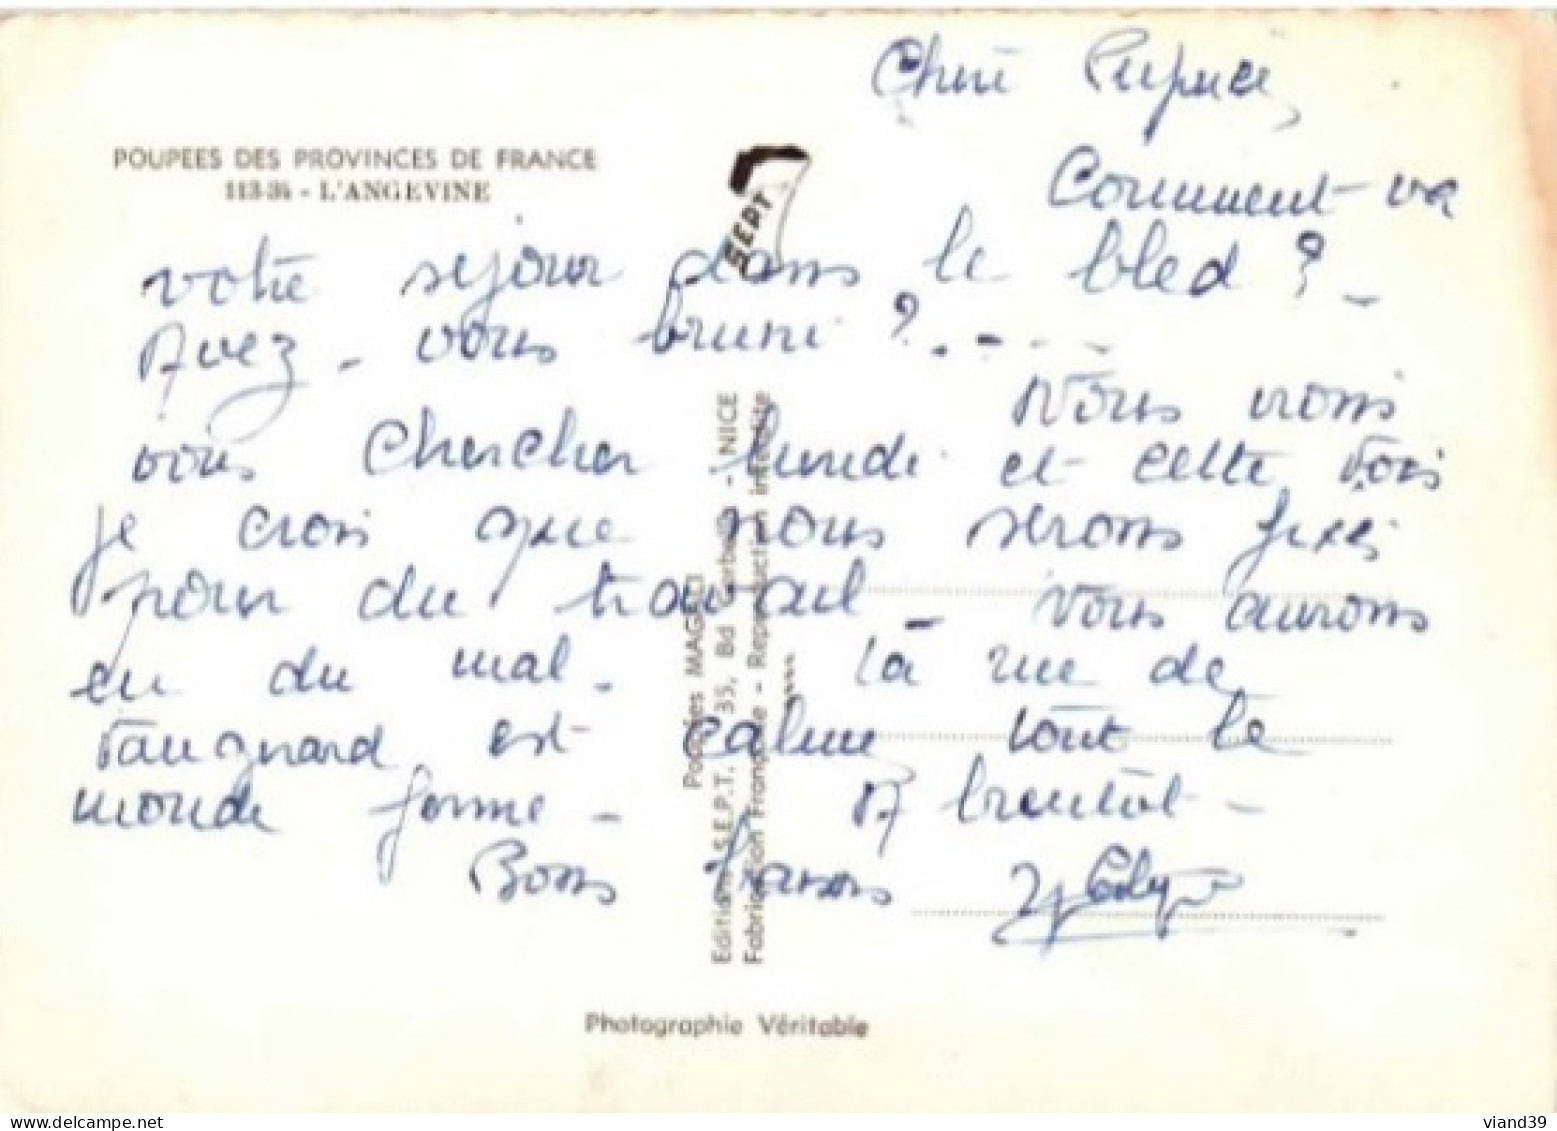 Chère
Comment va
POUPEES DES PROVINCES DE FRANCE
113-34 - L'ANGEVINE
votre séjour dans le bled ? -
Avez-vous bruni ? . - - -
Nous irons
vous chercher lundi et cette fois
je crois que nous serons fixés
pour du travail - Nous aurons
eu du mal. La rue de
est calme, tout le
monde ferme - A bientôt -
Bons baisers
SEPT
Poupées MAGALI
Editions S.E.P.T. 35, Bd - NICE
Fabrication Française - Reproduction interdite
Photographie Véritable
viand39